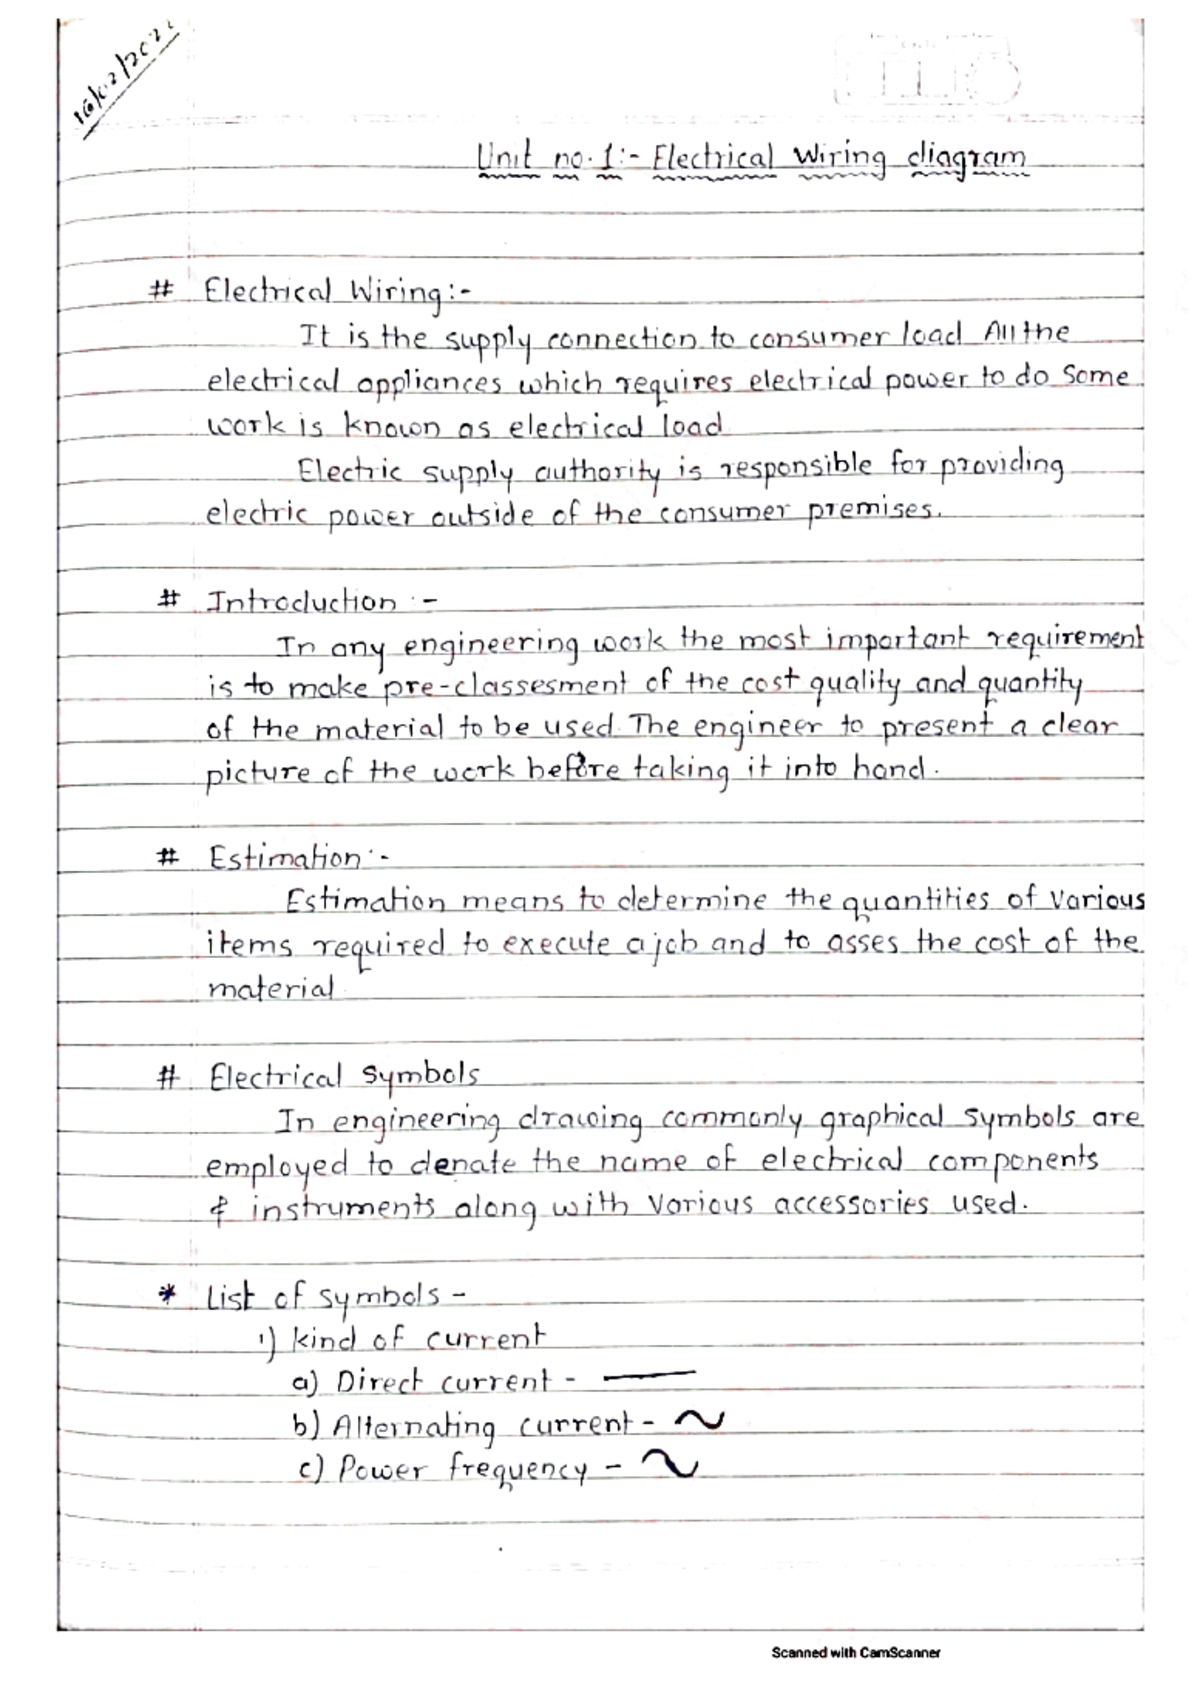 Unit no. 1:- Electrical Wiring diagram
# Electrical Wiring:-
It is the supply connection to consumer load All the
electrical appliances which requires electrical power to do some
work is known as electrical load
Electric supply authority is responsible for providing
electric power outside of the consumer premises.
# Introduction :-
In any engineering work the most important requirement
is to make pre-classesment of the cost quality and quantity
of the material to be used. The engineer to present a clear
picture of the work before taking it into hand.
# Estimation :-
Estimation means to determine the quantities of various
items required to execute a job and to asses the cost of the
material
# Electrical Symbols
In engineering drawing commonly graphical symbols are
employed to denate the name of electrical components
& instruments along with various accessories used.
* List of symbols -
1) kind of current
a) Direct current - —
b) Alternating current - ~
c) Power frequency - ~
Scanned with CamScanner